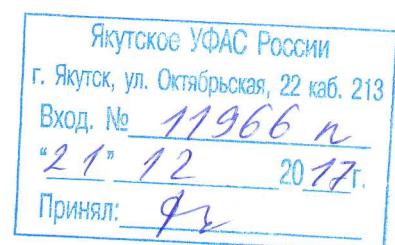 Якутское УФАС России
г. Якутск, ул. Октябрьская, 22 каб. 213
Вход. № 11966 п
"21" 12 2017г.
Принял: